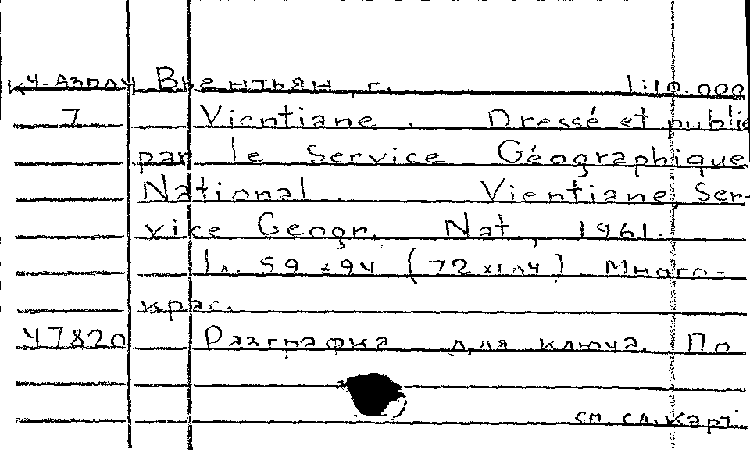 К4-Азполу Вьентьян, г. 1:10.000
7 Vientiane. Dressé et publié
par le Service Géographique
National. Vientiane, Ser-
vice Geogr. Nat., 1961.
1 л. 59 x 94 (72 x 104). Много-
крас.
47820 Разграфка для ключа. По
см. сл. карт.